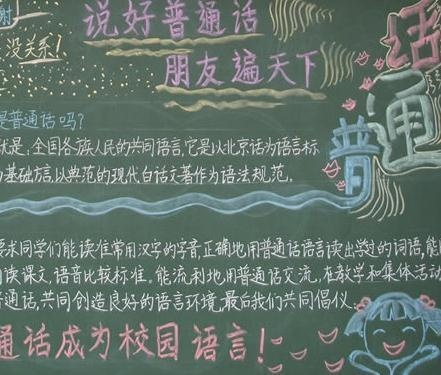 谢
没关系!
说好普通话
朋友遍天下
普通话
是普通话吗?
就是:全国各族人民的共同语言,它是以北京话为语言标
为基础方言,以典范的现代白话文著作为语法规范.
要求同学们能读准常用汉字的字音,正确地用普通话语言读出学过的词语,能
读课文,语音比较标准.能流利地用普通话交流,在教学和集体活动
普通话,共同创造良好的语言环境,最后我们共同倡仪:
通话成为校园语言!